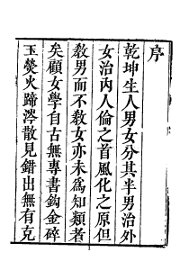 序
乾坤生人男女分其半男治外
女治內人倫之首風化之原但
敎男而不敎女亦未爲知類者
矣顧女學自古無專書鈎金碎
玉爝火蹄涔散見錯出無有克